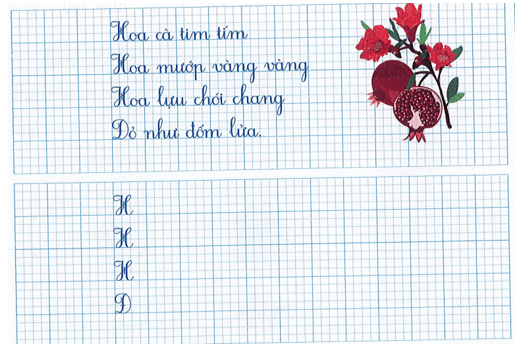 Hoa cà tim tím
Hoa mướp vàng vàng
Hoa lựu chói chang
Đỏ như đốm lửa.
H
H
H
Đ